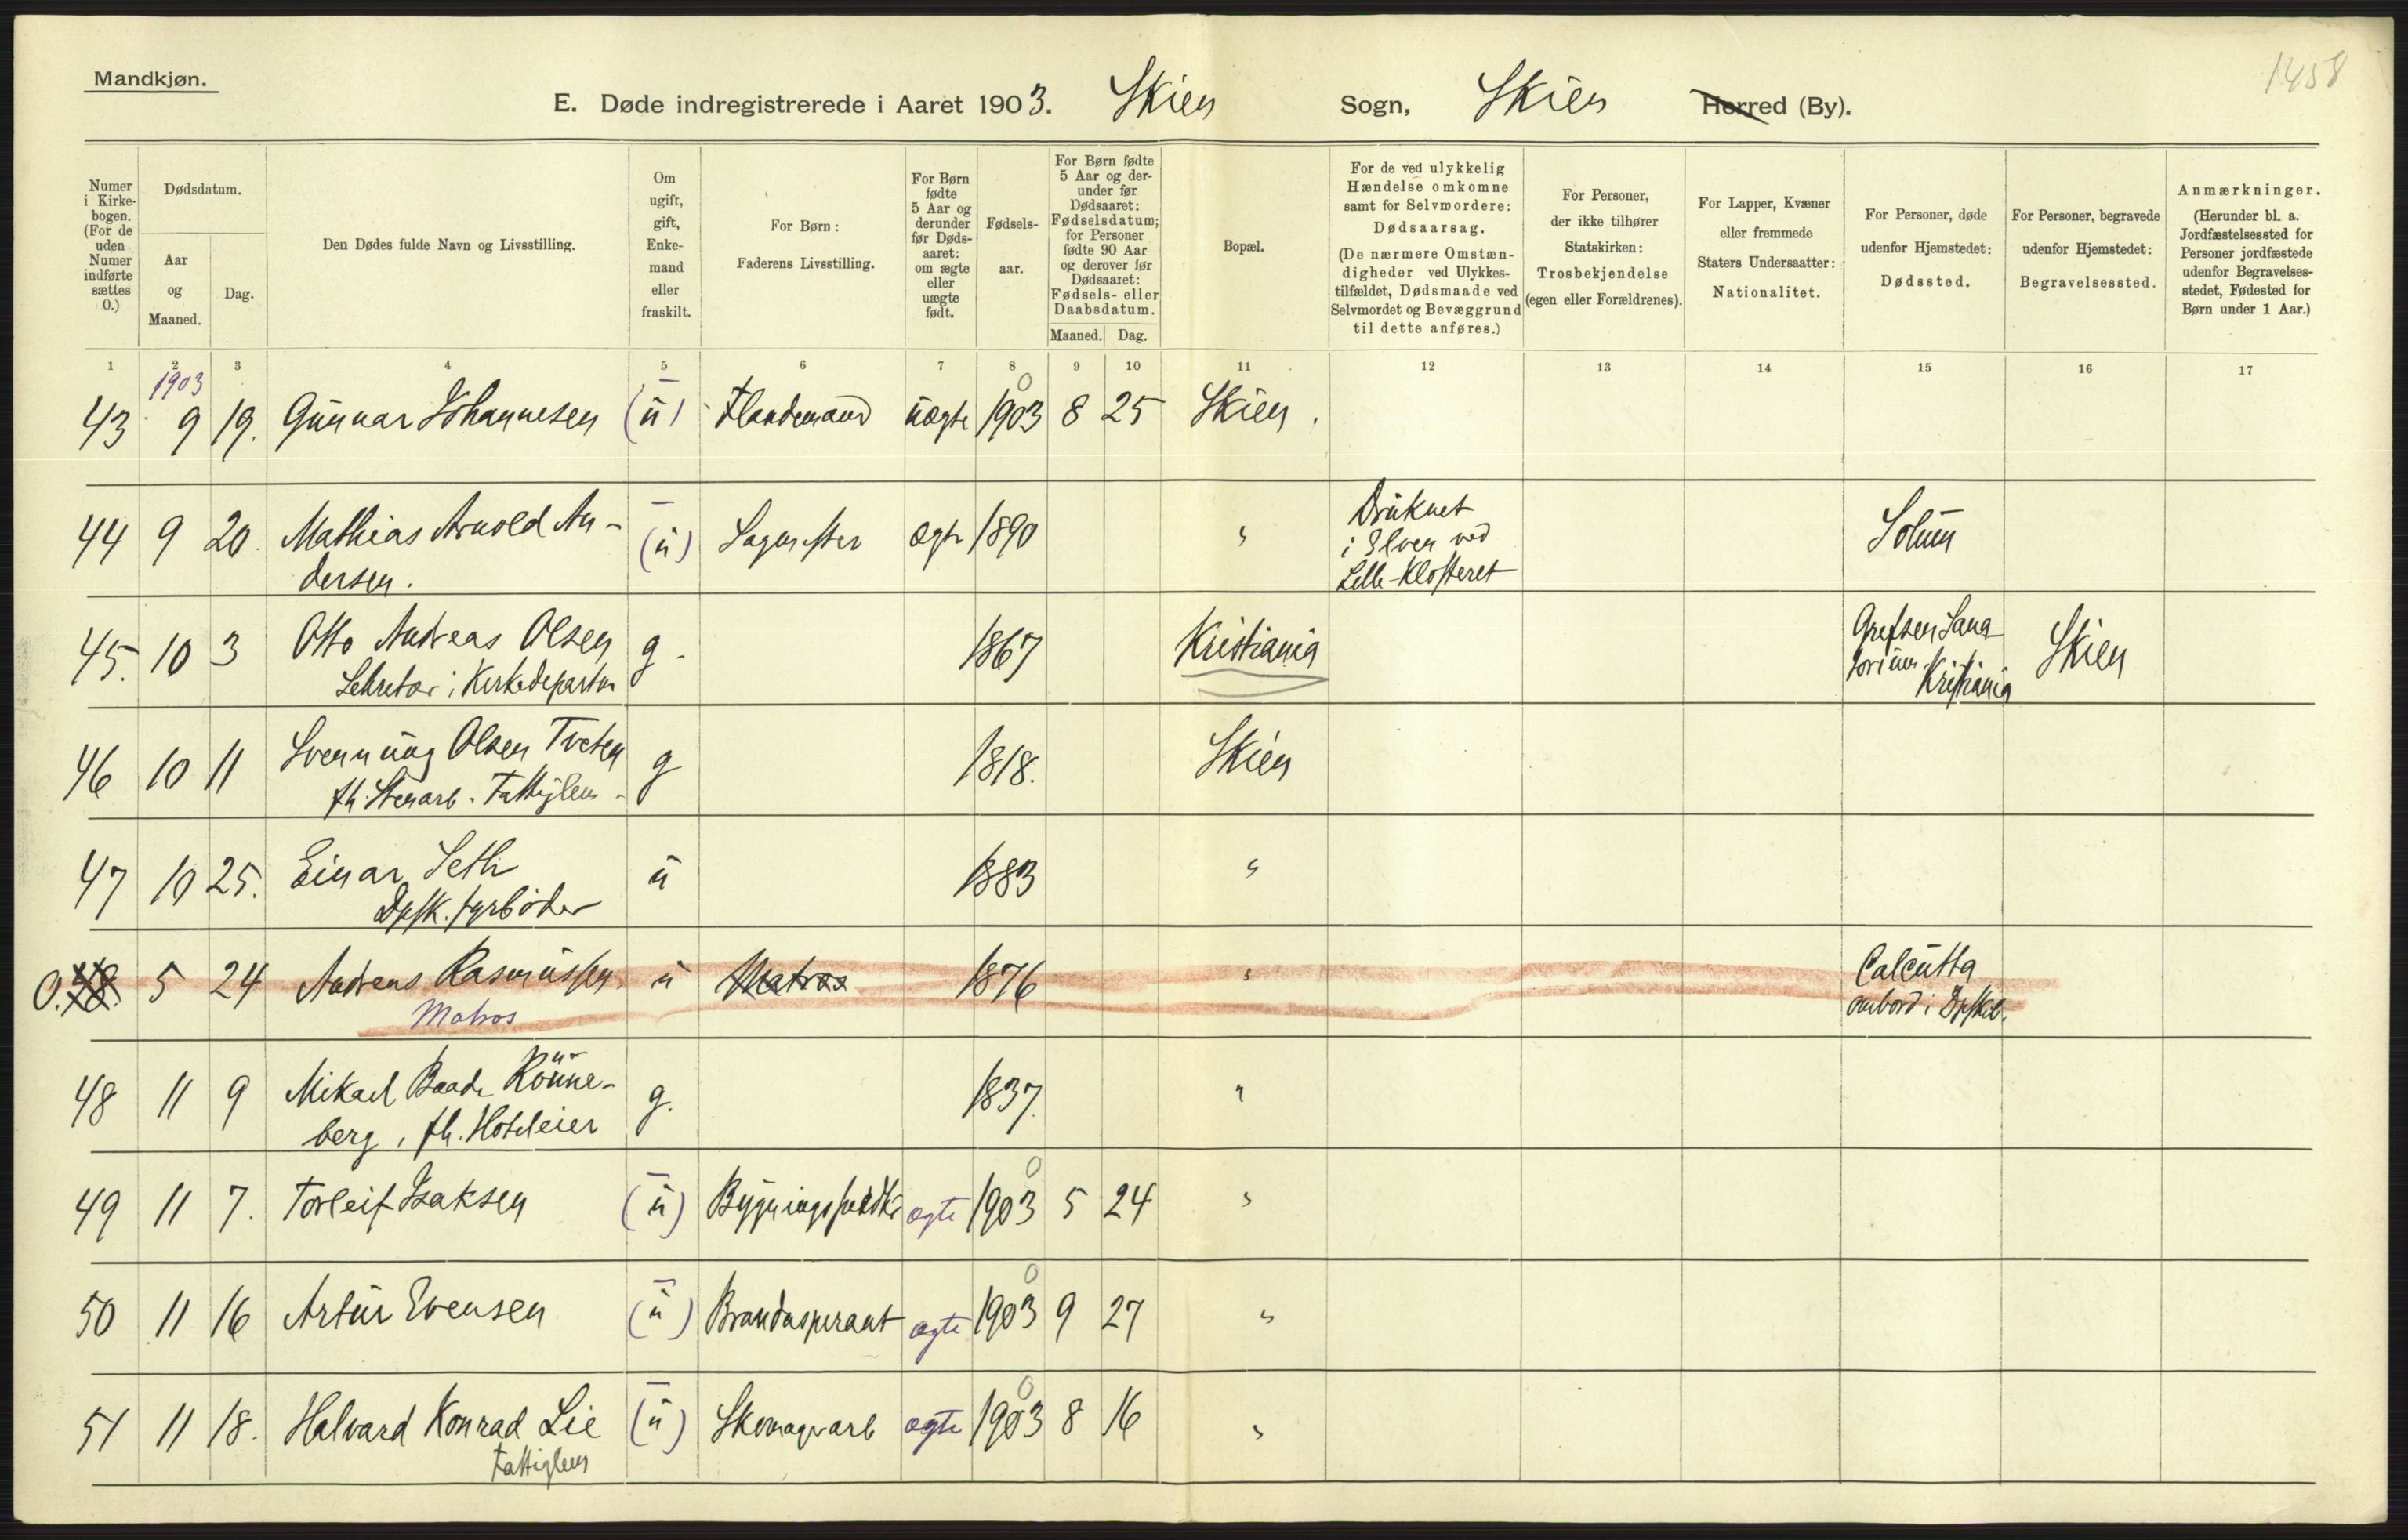 1458
Mandkjøn.
E. Døde indregistrerede i Aaret 1903. Skien Sogn, Skien Herred (By).
Numer i Kirkebogen. (For de uden Numer indførte sættes 0.)
Dødsdatum.
Aar og Maaned.
Dag.
Den Dødes fulde Navn og Livsstilling.
Om ugift, gift, Enkemand eller fraskilt.
For Børn: Faderens Livsstilling.
For Børn fødte 5 Aar og derunder før Dødsaaret: om ægte eller uægte født.
Fødselsaar.
For Børn fødte 5 Aar og derunder før Dødsaaret: Fødselsdatum; for Personer fødte 90 Aar og derover før Dødsaaret: Fødsels- eller Daabsdatum.
Maaned. Dag.
Bopæl.
For de ved ulykkelig Hændelse omkomne samt for Selvmordere: Dødsaarsag. (De nærmere Omstændigheder ved Ulykkestilfældet, Dødsmaade ved Selvmordet og Bevæggrund til dette anføres.)
For Personer, der ikke tilhører Statskirken: Trosbekjendelse (egen eller Forældrenes).
For Lapper, Kvæner eller fremmede Staters Undersaatter: Nationalitet.
For Personer, døde udenfor Hjemstedet: Dødssted.
For Personer, begravede udenfor Hjemstedet: Begravelsessted.
Anmærkninger. (Herunder bl. a. Jordfæstelsessted for Personer jordfæstede udenfor Begravelsesstedet, Fødested for Børn under 1 Aar.)
1 2 3 4 5 6 7 8 9 10 11 12 13 14 15 16 17
1903
43 9 19. Gunnar Johannesen (u) uægte 1903 0 8 25 Skien.
44 9 20. Mathias Arnold An-
dersen. (u) ægte 1890 " Druknet
i Elven ved
Lille-Klosteret Solum
45. 10 3 Otto Andreas Olsen g. 1867 Kristiania Grefsen Sana-
torium Kristiania Skien
Sekretær i Kirkedepartm
46 10 11 Svennung Olsen Tveten g 1818. Skien
fh. Stenarb. Fattiglem.
47 10 25. Einar Seth u 1883 "
Dpsk. fyrbøder
0. 48. 5 24 Andreas Rasmussen u Matros 1876 " Calcutta
ombord i Dpskib.
Matros
48 11 9 Mikael Baade Rönne-
berg, fh. Hoteleier g. 1837. "
49 11 7. Torleif Isaksen (u) ægte 1903 0 5 24 "
50 11 16 Artur Evensen (u) Brandaspirant ægte 1903 0 9 27 "
51 11 18. Halvard Konrad Lie (u) ægte 1903 0 8 16 "
Fattiglem